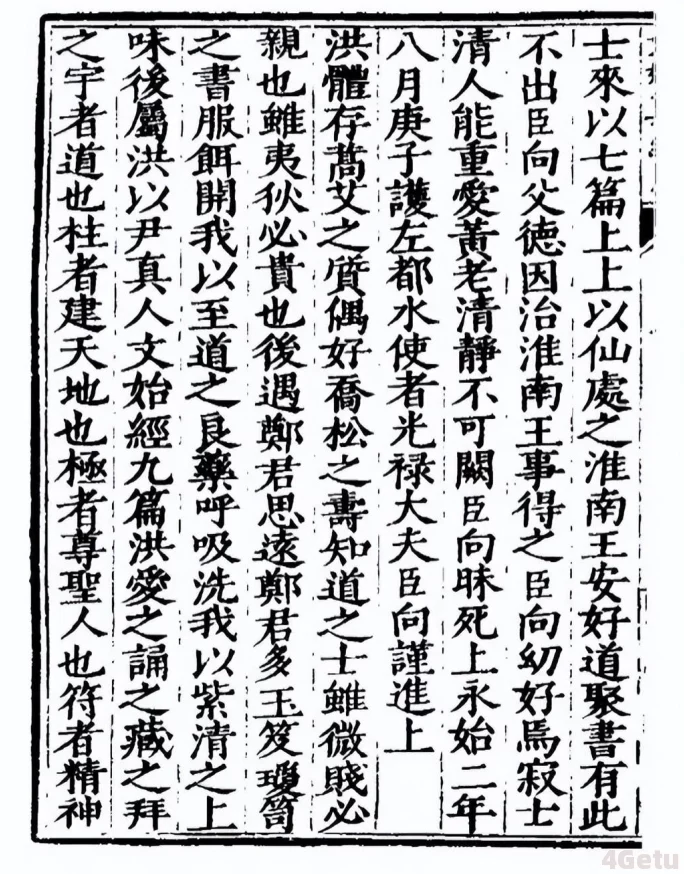 士來以七篇上上以仙處之淮南王安好道聚書有此
不出臣向父德因治淮南王事得之臣向幼好焉寂士
清人能重愛黃老清靜不可闕臣向昧死上永始二年
八月庚子護左都水使者光祿大夫臣向謹進上
洪體存蒿艾之質偶好喬松之壽知道之士雖微賤必
親也雖夷狄必貴也後遇鄭君思遠鄭君多玉笈瓊笥
之書服餌開我以至道之良藥呼吸洗我以紫清之上
味後屬洪以尹真人文始經九篇洪愛之誦之藏之拜
之宇者道也柱者建天地也極者尊聖人也符者精神
4Getu